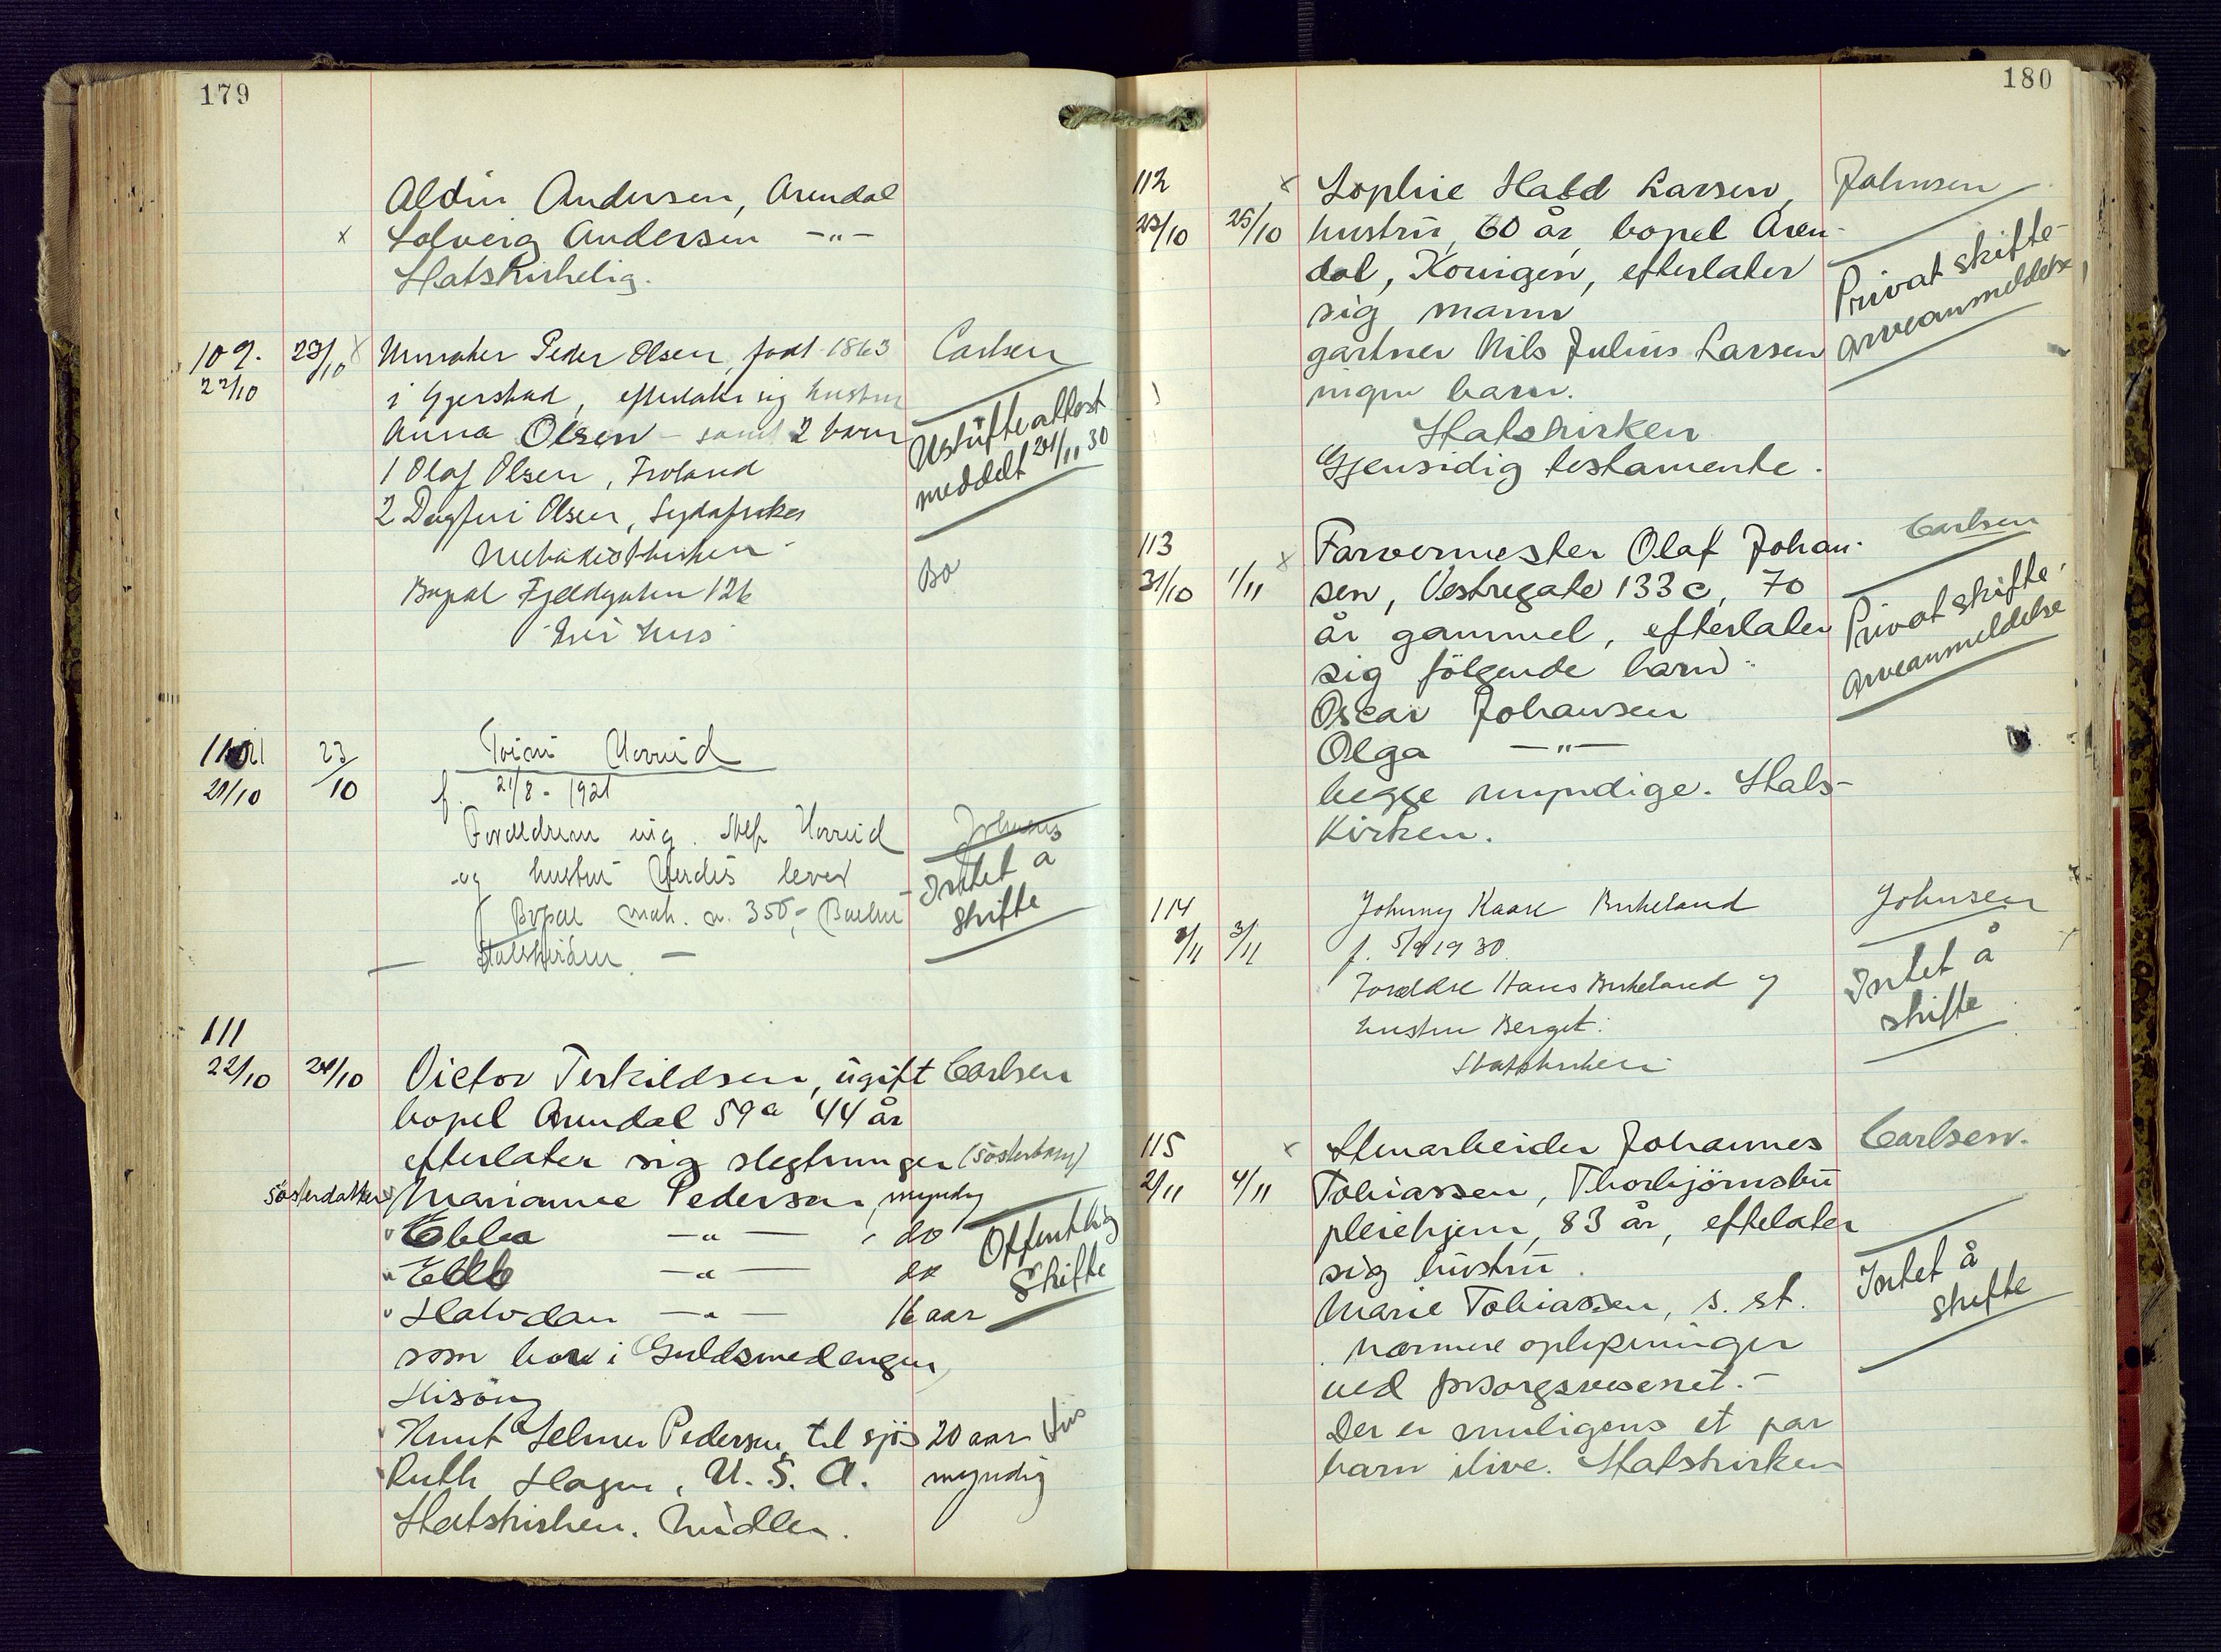 179
Aldin Andersen, Arendal
x Solveig Andersen —"—
Statskirkelig.
109. 23/10 x Murmester Peder Olsen, født 1863 Carlsen
22/10 i Gjerstad, efterlater sig hustru
Anna Olsen – samt 2 barn Uskifteattest
1 Olaf Olsen, Froland meddelt 24/11 30
2 Dagfin Olsen, Sydafrika
Bopæl Fjeldgaten 12b Bo
Eier hus
110 23/10
21/10
f. 21/8 - 1921
Foreldrene Johnsen
og hustru lever Intet å
Bopæl 350, Barbu skifte
Statskirken. —
111
22/10 24/10 Victor Terkildsen, ugift Carlsen
bopel Arendal 59a 44 år
efterlater sig slegtninger (søsterbarn)
søsterdatter Marianne Pedersen, myndig
" Ebba —"— , do Offentlig
" —"— do Skifte
" Halvdan —"— 16 aar
som bor i Guldsmedengen,
Hisöy
" Knut Selmer Pedersen, til sjøs 20 aar
" Ruth Hagen, U.S.A. myndig
Statskirken. Midler.
180
112 x Sophie Hald Larsen, Johnsen
23/10 25/10 hustru, 60 år, bopel Aren-
dal, Kouigen, efterlater Privat skifte-
sig mann arveanmeldelse
gartner Nils Julius Larsen
ingen barn.
Statskirken
Gjensidig testamente.
113 x Farvermester Olaf Johan- Carlsen
31/10 1/11 sen, Vestregate 133c, 70
år gammel, efterlater Privat skifte,
sig følgende barn: arveanmeldelse
Oscar Johansen
Olga —"—
begge myndige. Stats-
kirken.
114 Johnny Kaare Birkeland Johnsen
3/11 3/11 f. 5/9 1930.
Foreldre Hans Birkeland og Intet å
hustru Berget. skifte
Statskirken
115 x Stenarbeider Johannes Carlsen.
2/11 4/11 Tobiassen, Thorbjörnsbu
pleiehjem, 83 år, efterlater
sig hustru. Intet å
Marie Tobiassen, s. st. skifte
Nærmere oplysninger
ved forsorgsvesenet.-
Der er muligens et par
barn ilive. Statskirken